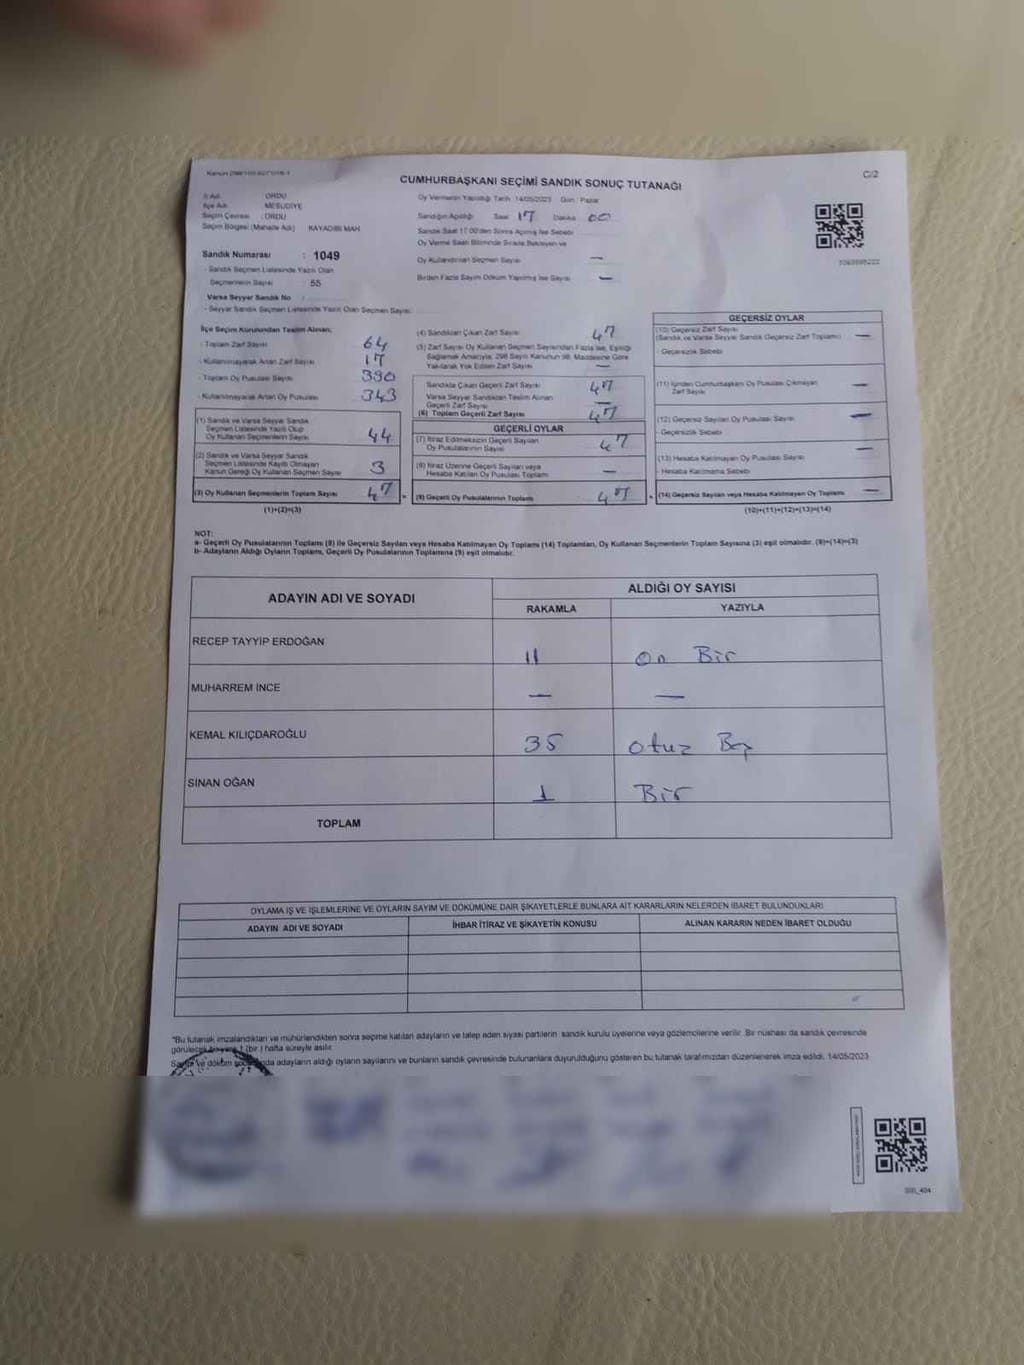 C/2
CUMHURBAŞKANI SEÇİMİ SANDIK SONUÇ TUTANAĞI
İl Adı : ORDU
İlçe Adı : MESUDİYE
Seçim Çevresi : ORDU
Seçim Bölgesi (Mahalle Adı) KAYADİBİ MAH
Sandık Numarası : 1049
- Sandık Seçmen Listesinde Yazılı Olan
Seçmenlerin Sayısı : 55
Varsa Seyyar Sandık No :
- Seyyar Sandık Seçmen Listesinde Yazılı Olan Seçmen Sayısı:
Oy Vermenin Yapıldığı Tarih : 14/05/2023 Gün : Pazar
Sandığın Açıldığı Saat 17 Dakika 00
Sandık Saat 17.00'den Sonra Açılmış İse Sebebi
Oy Verme Saati Bitiminde Sırada Bekleyen ve
Oy Kullandırılan Seçmen Sayısı —
Birden Fazla Sayım Döküm Yapılmış İse Sayısı —
İlçe Seçim Kurulundan Teslim Alınan;
- Toplam Zarf Sayısı 64
- Kullanılmayarak Artan Zarf Sayısı 17
- Toplam Oy Pusulası Sayısı 390
- Kullanılmayarak Artan Oy Pusulası 343
(1) Sandık ve Varsa Seyyar Sandık
Seçmen Listesinde Yazılı Olup
Oy Kullanan Seçmenlerin Sayısı 44
(2) Sandık ve Varsa Seyyar Sandık
Seçmen Listesinde Kayıtlı Olmayan
Kanun Gereği Oy Kullanan Seçmen Sayısı 3
(3) Oy Kullanan Seçmenlerin Toplam Sayısı 47 =
(1)+(2)=(3)
(4) Sandıktan Çıkan Zarf Sayısı 47
(5) Zarf Sayısı Oy Kullanan Seçmen Sayısından Fazla İse, Eşitliği
Sağlamak Amacıyla, 298 Sayılı Kanunun 98. Maddesine Göre
Yakılarak Yok Edilen Zarf Sayısı —
Sandıkta Çıkan Geçerli Zarf Sayısı 47
Varsa Seyyar Sandıktan Teslim Alınan
Geçerli Zarf Sayısı —
(6) Toplam Geçerli Zarf Sayısı 47
GEÇERLİ OYLAR
(7) İtiraz Edilmeksizin Geçerli Sayılan
Oy Pusulalarının Sayısı 47
(8) İtiraz Üzerine Geçerli Sayılan veya
Hesaba Katılan Oy Pusulası Toplamı —
(9) Geçerli Oy Pusulalarının Toplamı 47 +
GEÇERSİZ OYLAR
(10) Geçersiz Zarf Sayısı
(Sandık ve Varsa Seyyar Sandık Geçersiz Zarf Toplamı) —
- Geçersizlik Sebebi
(11) İçinden Cumhurbaşkanı Oy Pusulası Çıkmayan
Zarf Sayısı —
(12) Geçersiz Sayılan Oy Pusulası Sayısı —
- Geçersizlik Sebebi
(13) Hesaba Katılmayan Oy Pusulası Sayısı —
- Hesaba Katılmama Sebebi
(14) Geçersiz Sayılan veya Hesaba Katılmayan Oy Toplamı —
(10)+(11)+(12)+(13)=(14)
NOT:
a- Geçerli Oy Pusulalarının Toplamı (9) ile Geçersiz Sayılan veya Hesaba Katılmayan Oy Toplamı (14) Toplamları, Oy Kullanan Seçmenlerin Toplam Sayısına (3) eşit olmalıdır. (9)+(14)=(3)
b- Adayların Aldığı Oyların Toplamı, Geçerli Oy Pusulalarının Toplamına (9) eşit olmalıdır.
ADAYIN ADI VE SOYADI
ALDIĞI OY SAYISI
RAKAMLA YAZIYLA
RECEP TAYYİP ERDOĞAN 11 on Bir
MUHARREM İNCE — —
KEMAL KILIÇDAROĞLU 35 otuz Beş
SİNAN OĞAN 1 Bir
TOPLAM
OYLAMA İŞ VE İŞLEMLERİNE VE OYLARIN SAYIM VE DÖKÜMÜNE DAİR ŞİKAYETLERLE BUNLARA AİT KARARLARIN NELERDEN İBARET BULUNDUKLARI
ADAYIN ADI VE SOYADI İHBAR İTİRAZ VE ŞİKAYETİN KONUSU ALINAN KARARIN NEDEN İBARET OLDUĞU
"Bu tutanak imzalandıktan ve mühürlendikten sonra seçime katılan adayların ve talep eden siyasi partilerin sandık kurulu üyelerine veya gözlemcilerine verilir. Bir nüshası da sandık çevresinde
görülecek bir yere 1 (bir) hafta süreyle asılır.
Sayım ve döküm sonucunda adayların aldığı oyların sayılarını ve bunların sandık çevresinde bulunanlara duyurulduğunu gösteren bu tutanak tarafımızdan düzenlenerek imza edildi. 14/05/2023